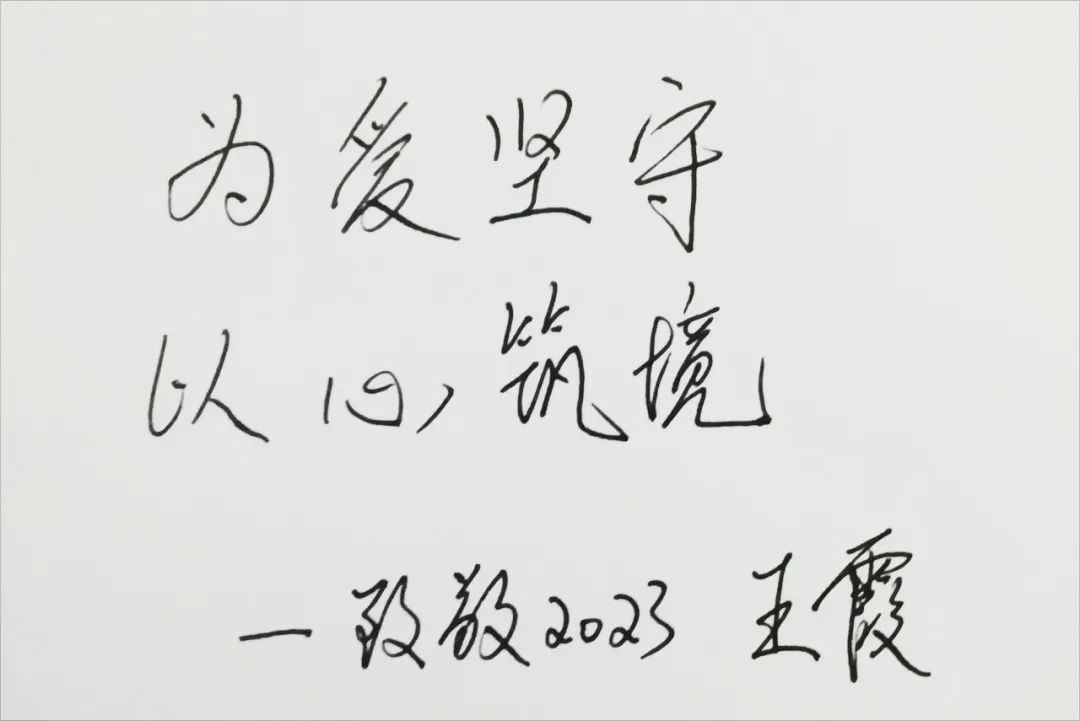 为爱坚守
以心筑境
—致敬2023 王霞